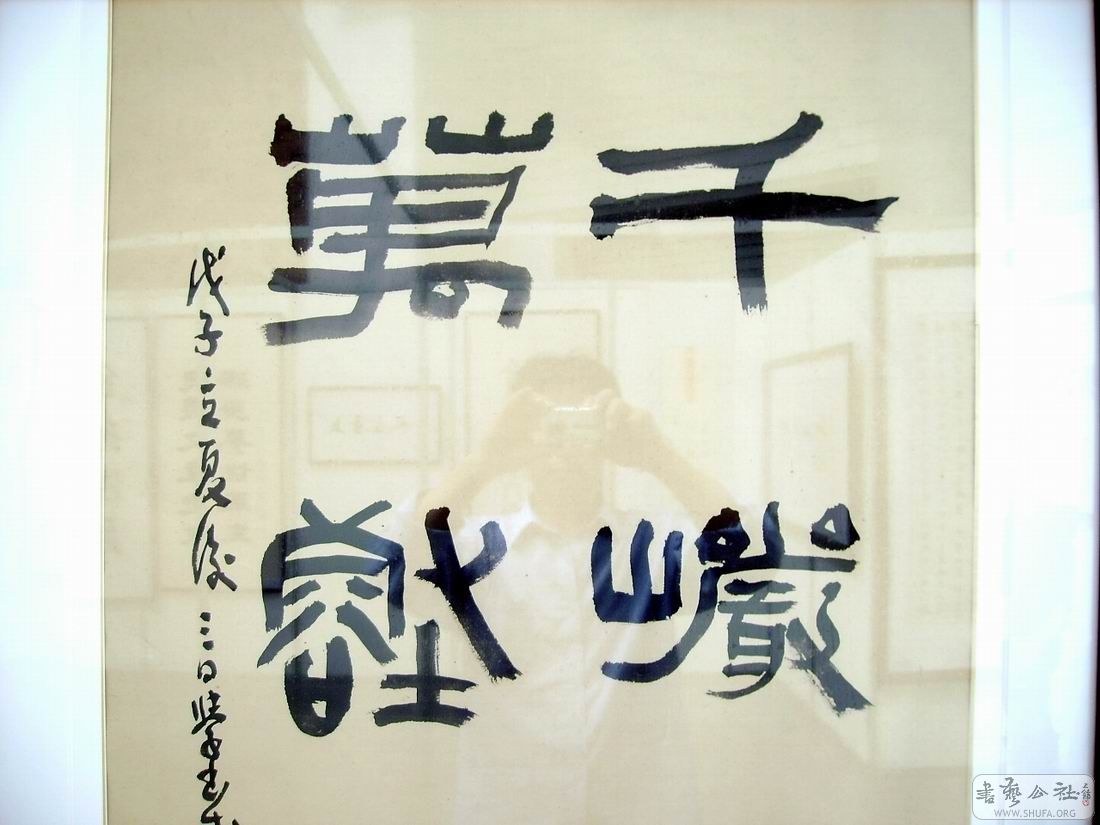 千巖
萬壑
戊子立夏後三日
書藝公社
WWW.SHUFA.ORG